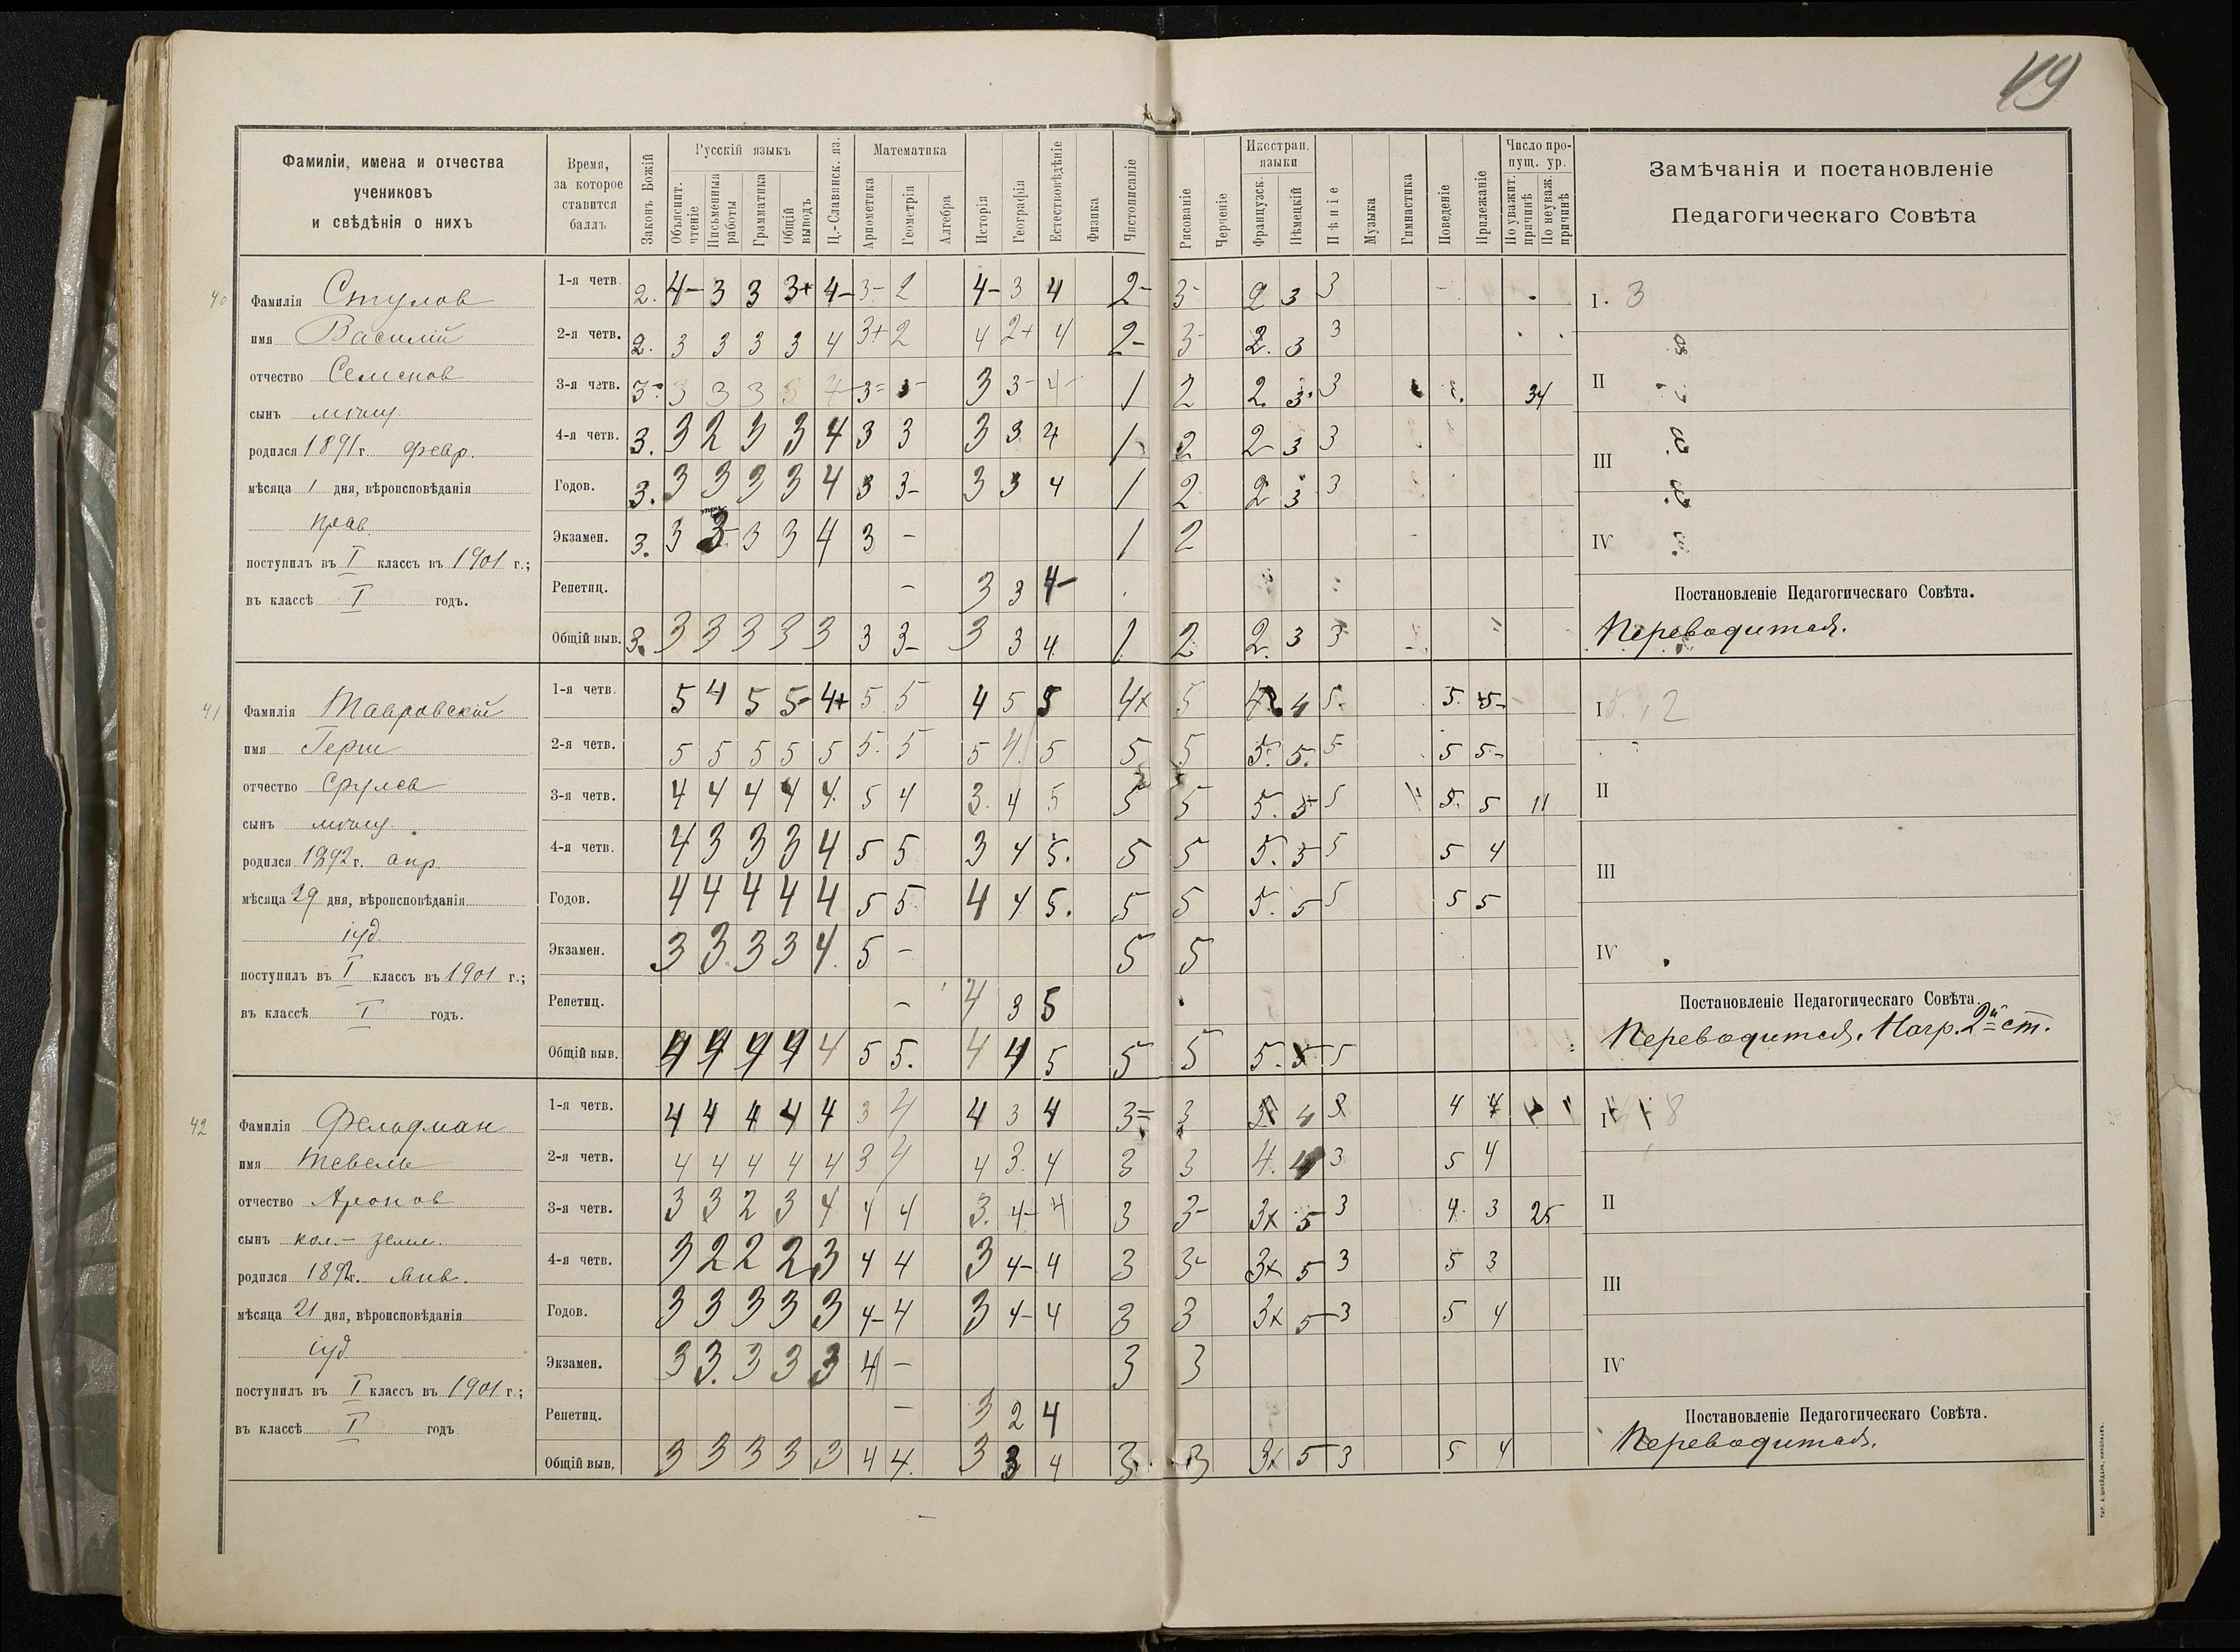 49
Фамиліи, имена и отчества
учениковъ
и свѣдѣнія о нихъ
Время,
за которое
ставится
баллъ
Законъ Божій
Русскій языкъ
Объяснит. чтеніе
Письменныя работы
Грамматика
Общій выводъ
Ц.-Славянск. яз.
Математика
Ариѳметика
Геометрія
Алгебра
Исторія
Географія
Естествовѣдѣніе
Физика
Чистописаніе
Рисованіе
Черченіе
Иностран.
языки
Французск.
Нѣмецкій
Пѣніе
Музыка
Гимнастика
Поведеніе
Прилежаніе
Число про-
пущ. ур.
По уважит. причинѣ
По неуваж. причинѣ
Замѣчанія и постановленіе
Педагогическаго Совѣта
40
Фамилія Стулов
имя Василій
отчество Семенов
сынъ мѣщ.
родился 1891 г. февр.
мѣсяца 1 дня, вѣроисповѣданія
прав.
поступилъ въ I классъ въ 1901 г.;
въ классѣ I годъ.
1-я четв. 2. 4- 3 3 3+ 4- 3- 2 4- 3 4 2- 3- 2 3 3
2-я четв. 2. 3 3 3 3 4 3+ 2 4 2+ 4 2- 3- 2. 3 3
3-я четв. 3- 3 3 3 3 4- 3= 3- 3 3- 4- 1 2 2. 3. 3 34
4-я четв. 3. 3 2 3 3 4 3 3 3 3 4 1 2 2 3 3
Годов. 3. 3 3 3 3 4 3 3- 3 3 4 1 2 2 3 3
Экзамен. 3. 3 3 3 3 4 3 - 1 2
Репетиц. - 3 3 4-
Общій выв. 3. 3 3 3 3 3 3 3- 3 3 4 1 2 2. 3 3
I. 3
II
III
IV
Постановленіе Педагогическаго Совѣта.
Переводится.
41
Фамилія Тавровскій
имя Герш
отчество Срулев
сынъ мѣщ.
родился 1892 г. апр.
мѣсяца 29 дня, вѣроисповѣданія
іуд.
поступилъ въ I классъ въ 1901 г.;
въ классѣ I годъ.
1-я четв. 5 4 5 5- 4+ 5 5 4 5 5 4+ 5 4 5. 5. 5-
2-я четв. 5 5 5 5 5 5. 5 5 4 5 5 5 5. 5. 5 5 5-
3-я четв. 4 4 4 4 4. 5 4 3. 4 5 5 5 5. 5 5 5. 5 11
4-я четв. 4 3 3 3 4 5 5 3 4 5. 5 5 5. 5 5 5 4
Годов. 4 4 4 4 4 5 5 4 4 5. 5 5 5. 5 5 5 5
Экзамен. 3 3. 3 3 4. 5 - 5 5
Репетиц. - 4 3 5
Общій выв. 4 4 4 4 4 5 5. 4 4 5 5 5 5. 5 5
I
II
III
IV
Постановленіе Педагогическаго Совѣта.
Переводится. Нагр. 2й ст.
42
Фамилія Фельдман
имя Тевель
отчество Аронов
сынъ кол.- земл.
родился 189 г. янв.
мѣсяца 21 дня, вѣроисповѣданія
іуд
поступилъ въ I классъ въ 1901 г.;
въ классѣ I годъ
1-я четв. 4 4 4 4 4 3 4 4 3 4 3= 3 4 3 4 4
2-я четв. 4 4 4 4 4 3 4 4 3. 4 3 3 4. 4 3 5 4
3-я четв. 3 3 2 3 4 4 4 3. 4- 4 3 3- 3x 5 3 4. 3 25
4-я четв. 3 2 2 2 3 4 4 3 4- 4 3 3- 3x 5 3 5 3
Годов. 3 3 3 3 3 4- 4 3 4- 4 3 3 3x 5 3 5 4
Экзамен. 3 3. 3 3 3 4 - 3 3
Репетиц. - 3 2 4
Общій выв. 3 3 3 3 3 4 4. 3 3 4 3 3 3x 5 3 5 4
I
II
III
IV
Постановленіе Педагогическаго Совѣта.
Переводится.